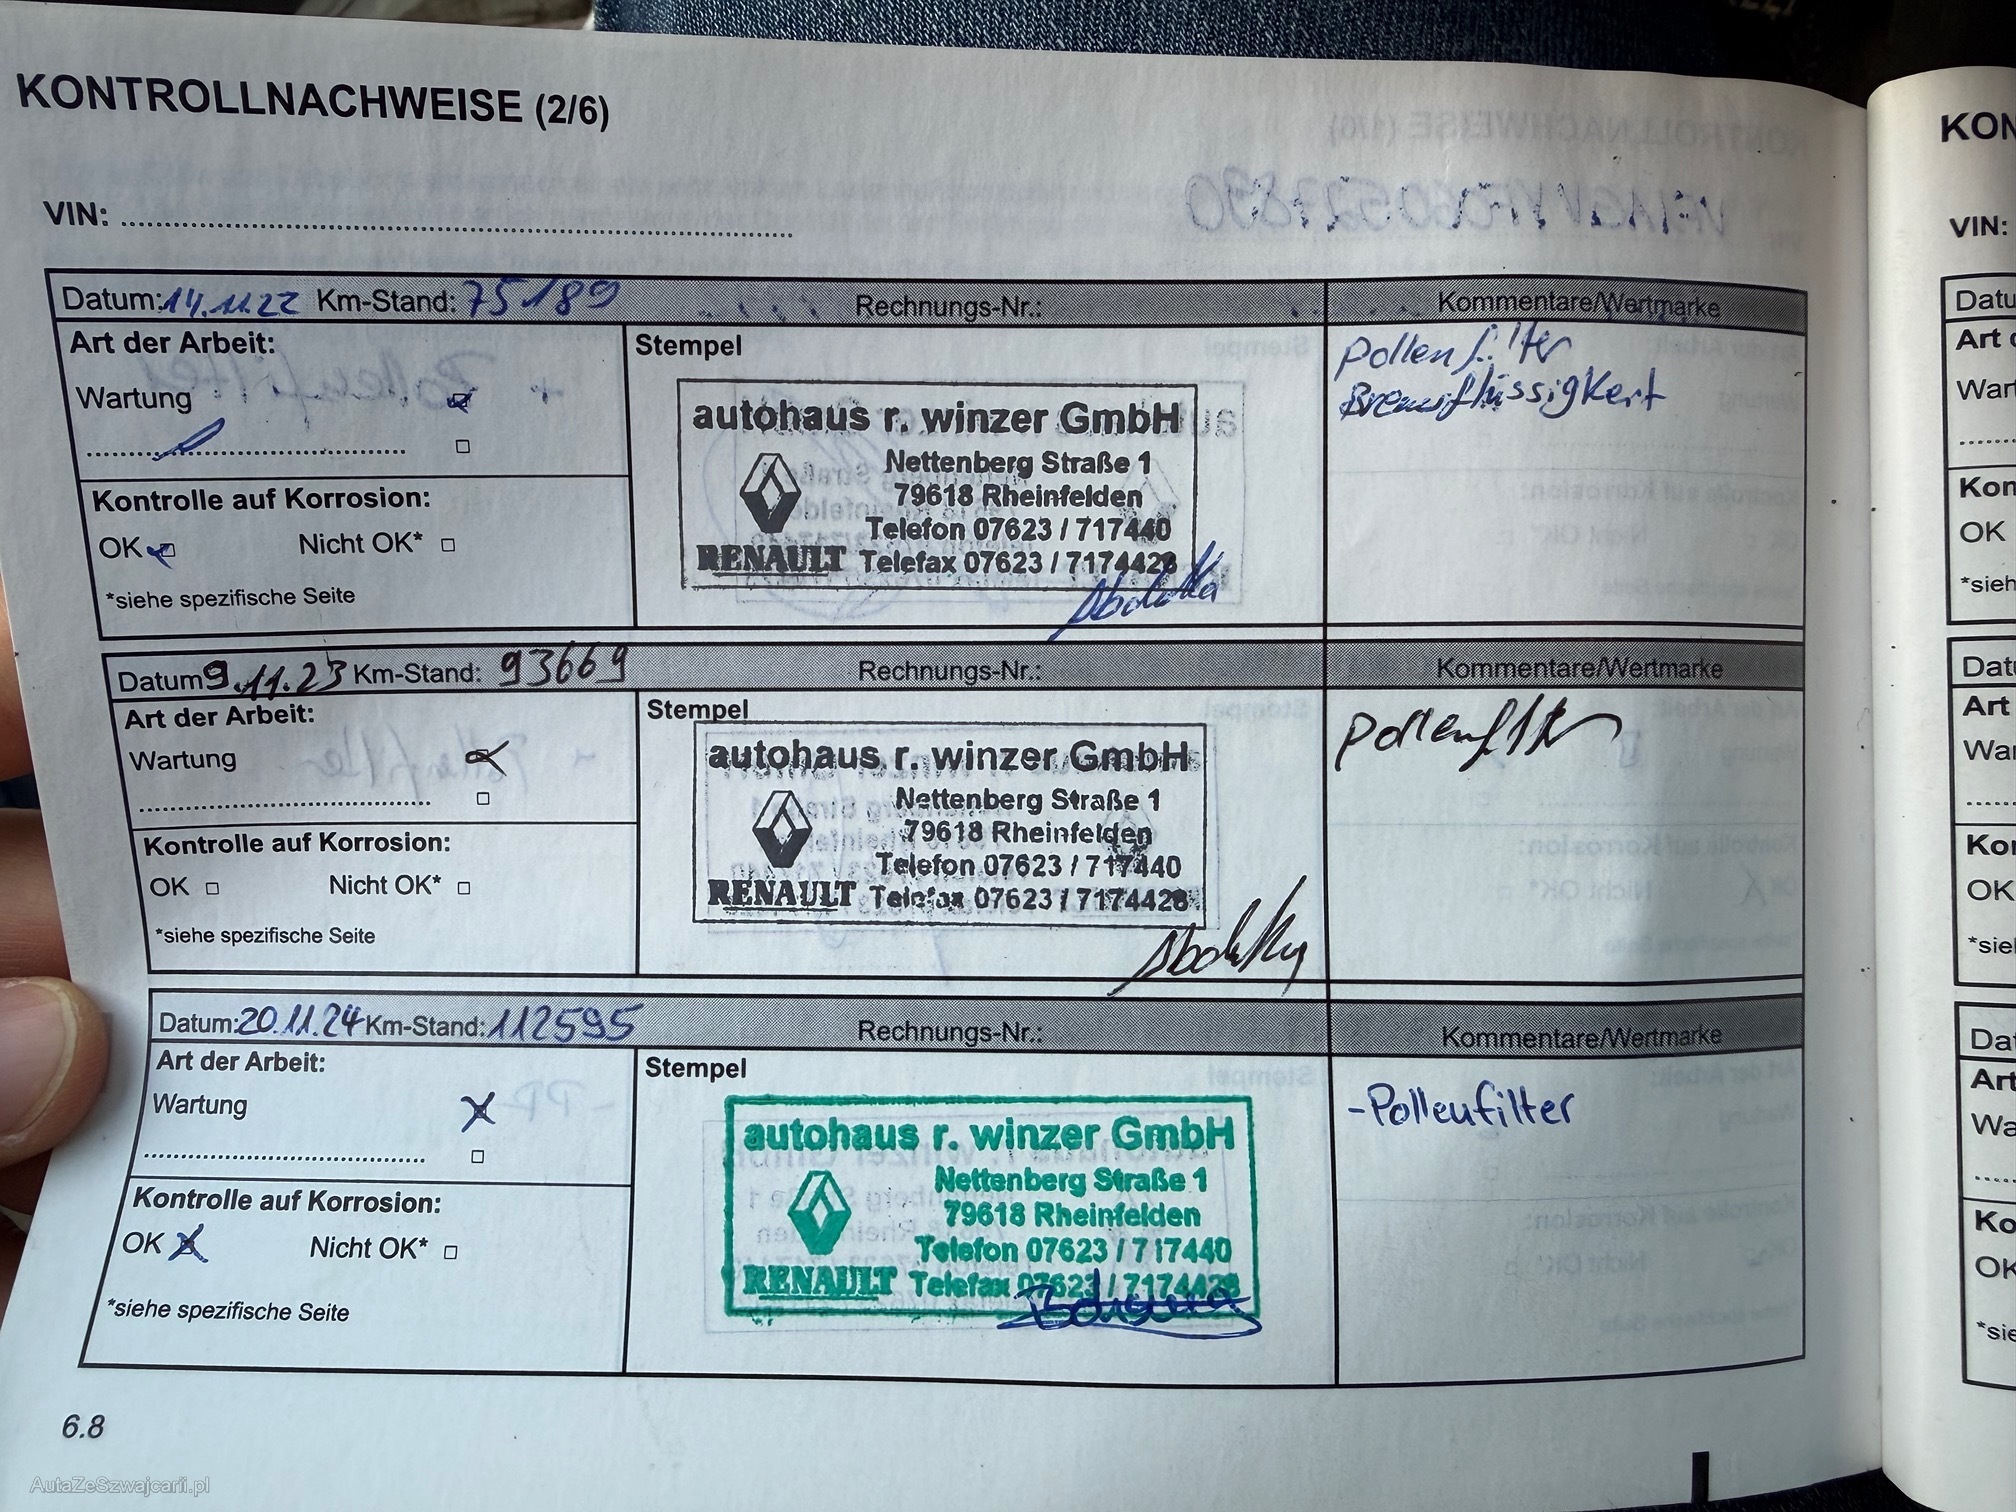 KONTROLLNACHWEISE (2/6)
VIN:
Datum: 14.11.22 Km-Stand: 75189 Rechnungs-Nr.: Kommentare/Wertmarke
Art der Arbeit:
Wartung
Kontrolle auf Korrosion:
OK Nicht OK*
*siehe spezifische Seite
Stempel
autohaus r. winzer GmbH
Nettenberg Straße 1
79618 Rheinfelden
Telefon 07623 / 717440
RENAULT Telefax 07623 / 7174428
Pollenfilter
Bremsflüssigkeit
Datum 9.11.23 Km-Stand: 93669 Rechnungs-Nr.: Kommentare/Wertmarke
Art der Arbeit:
Wartung
Kontrolle auf Korrosion:
OK Nicht OK*
*siehe spezifische Seite
Stempel
autohaus r. winzer GmbH
Nettenberg Straße 1
79618 Rheinfelden
Telefon 07623 / 717440
RENAULT Telefax 07623 / 7174428
Pollenfilter
Datum: 20.11.24 Km-Stand: 112595 Rechnungs-Nr.: Kommentare/Wertmarke
Art der Arbeit:
Wartung
Kontrolle auf Korrosion:
OK Nicht OK*
*siehe spezifische Seite
Stempel
autohaus r. winzer GmbH
Nettenberg Straße 1
79618 Rheinfelden
Telefon 07623 / 717440
RENAULT Telefax 07623 / 7174428
-Pollenfilter
6.8
AutaZeSzwajcarii.pl
KON
VIN:
Datu
Art
OK
*sieh